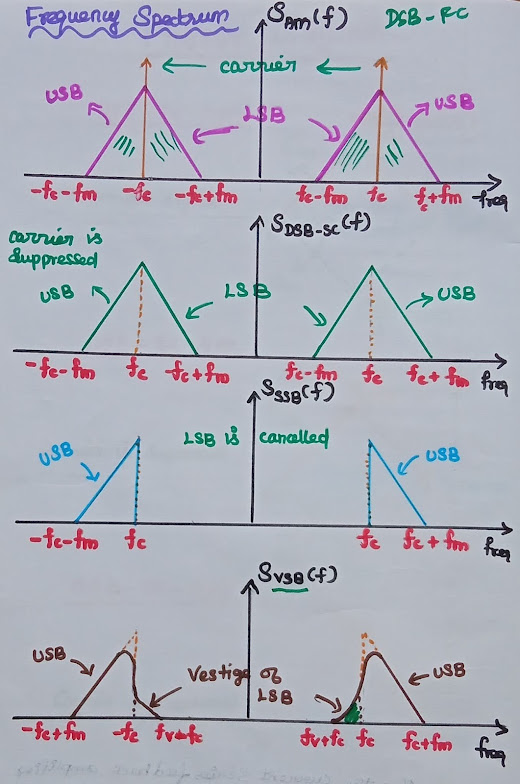 Frequency Spectrum
S_AM(f)
DSB-FC
carrier
USB
LSB
USB
-fc-fm
-fc
-fc+fm
fc-fm
fc
fc+fm
freq
S_DSB-SC(f)
carrier is
suppressed
USB
LSB
USB
-fc-fm
fc
-fc+fm
fc-fm
fc
fc+fm
freq
S_SSB(f)
LSB is cancelled
USB
USB
-fc-fm
fc
fc
fc+fm
freq
S_VSB(f)
USB
Vestige of
LSB
USB
-fc+fm
-fc
fv-fc
fv+fc
fc
fc+fm
freq